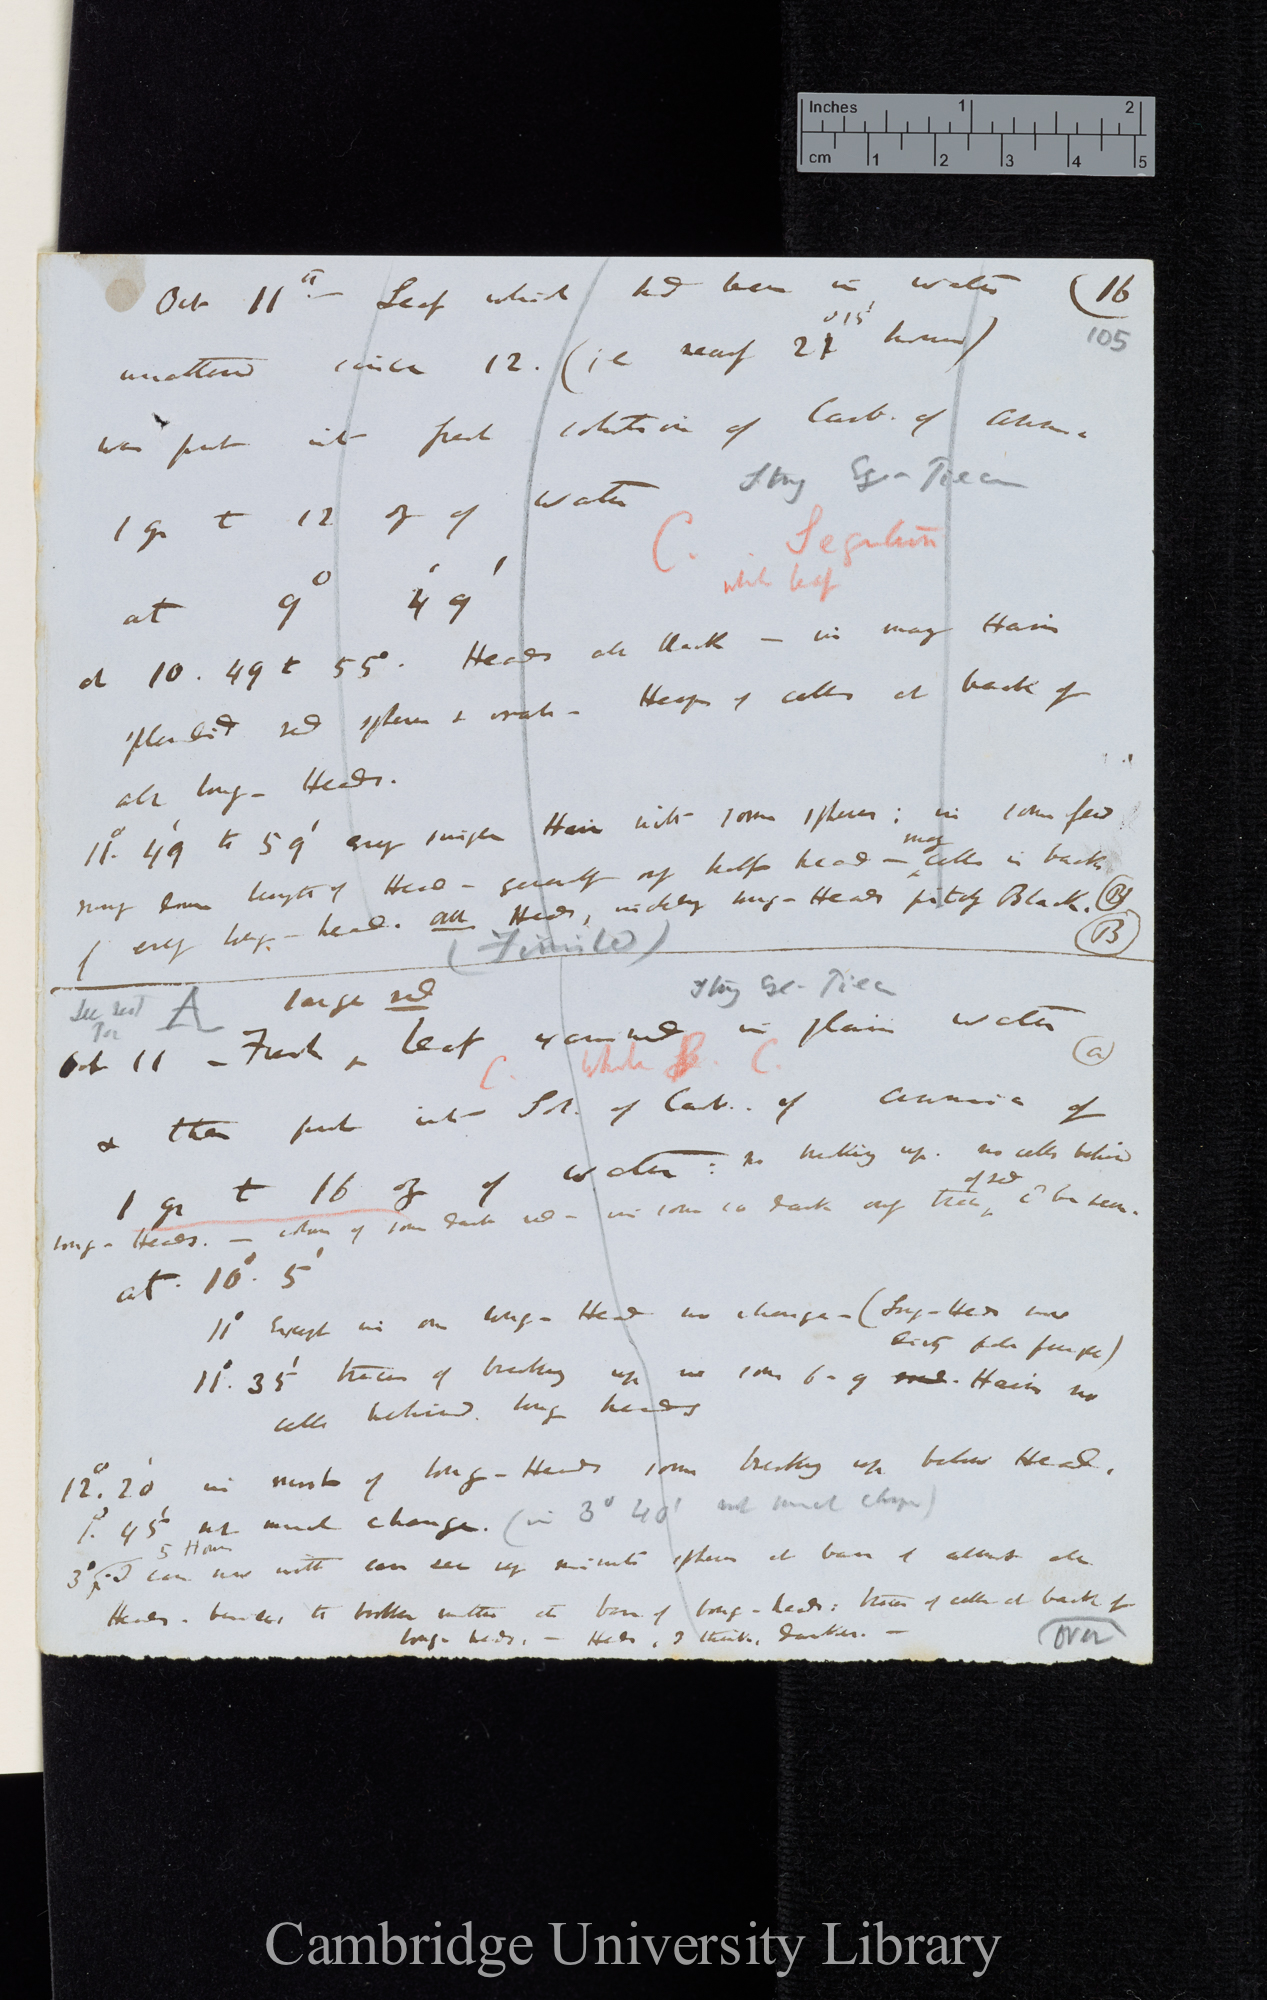 Inches 1 2
cm 1 2 3 4 5
Oct 11th — Leaf which had been in water (16
105
unaltered since 12. (ie nearly 21° 15' hours)
was put into fresh solution of Carb. of Amm.
1 gr to 12 oz of water
C. Segregation
white leaf
at 9° 49'
at 10. 49 to 55°. Heads all black — in many Hairs
splendid red spheres & ovals — Heaps of cells at back of
all long-Heads.
11°. 49' to 59' every single Hair with some spheres; in some few
many
running down length of Head — generally only half head — cells in back
of every long-head. all Heads, including long-Heads pitchy Black. (B)
(B)
(Finished)
A large red
Oct 11 — Fresh leaf examined in plain water
(a)
C. C.
& then put into Sol. of Carb. of ammonia of
1 gr to 16 oz of water: no breaking up. no cells behind
of red
long-Heads. — colour of some dark red — in some so dark only trace, to be seen.
at. 10°. 5'
11° Except in one long-Head no change — (Long-Heads were
dirty pale purple)
11°. 35' traces of breaking up in some 6-9 Hairs no
cells behind long heads
12°. 20' in most of long-Heads some breaking up below Head.
1°. 45' not much change. (in 3° 40' not much change)
5 Hours
3° can now with care see very minute spheres at base of almost all
Heads. besides the broken matter at base of long-heads: traces of cells at back of
long-heads. — Heads, I think, darker. —
over
Cambridge University Library